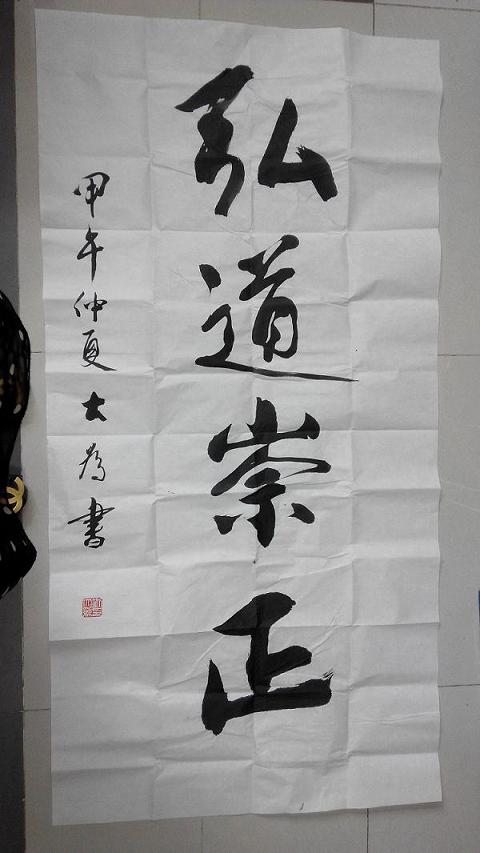 弘道崇正
甲午仲夏大为書